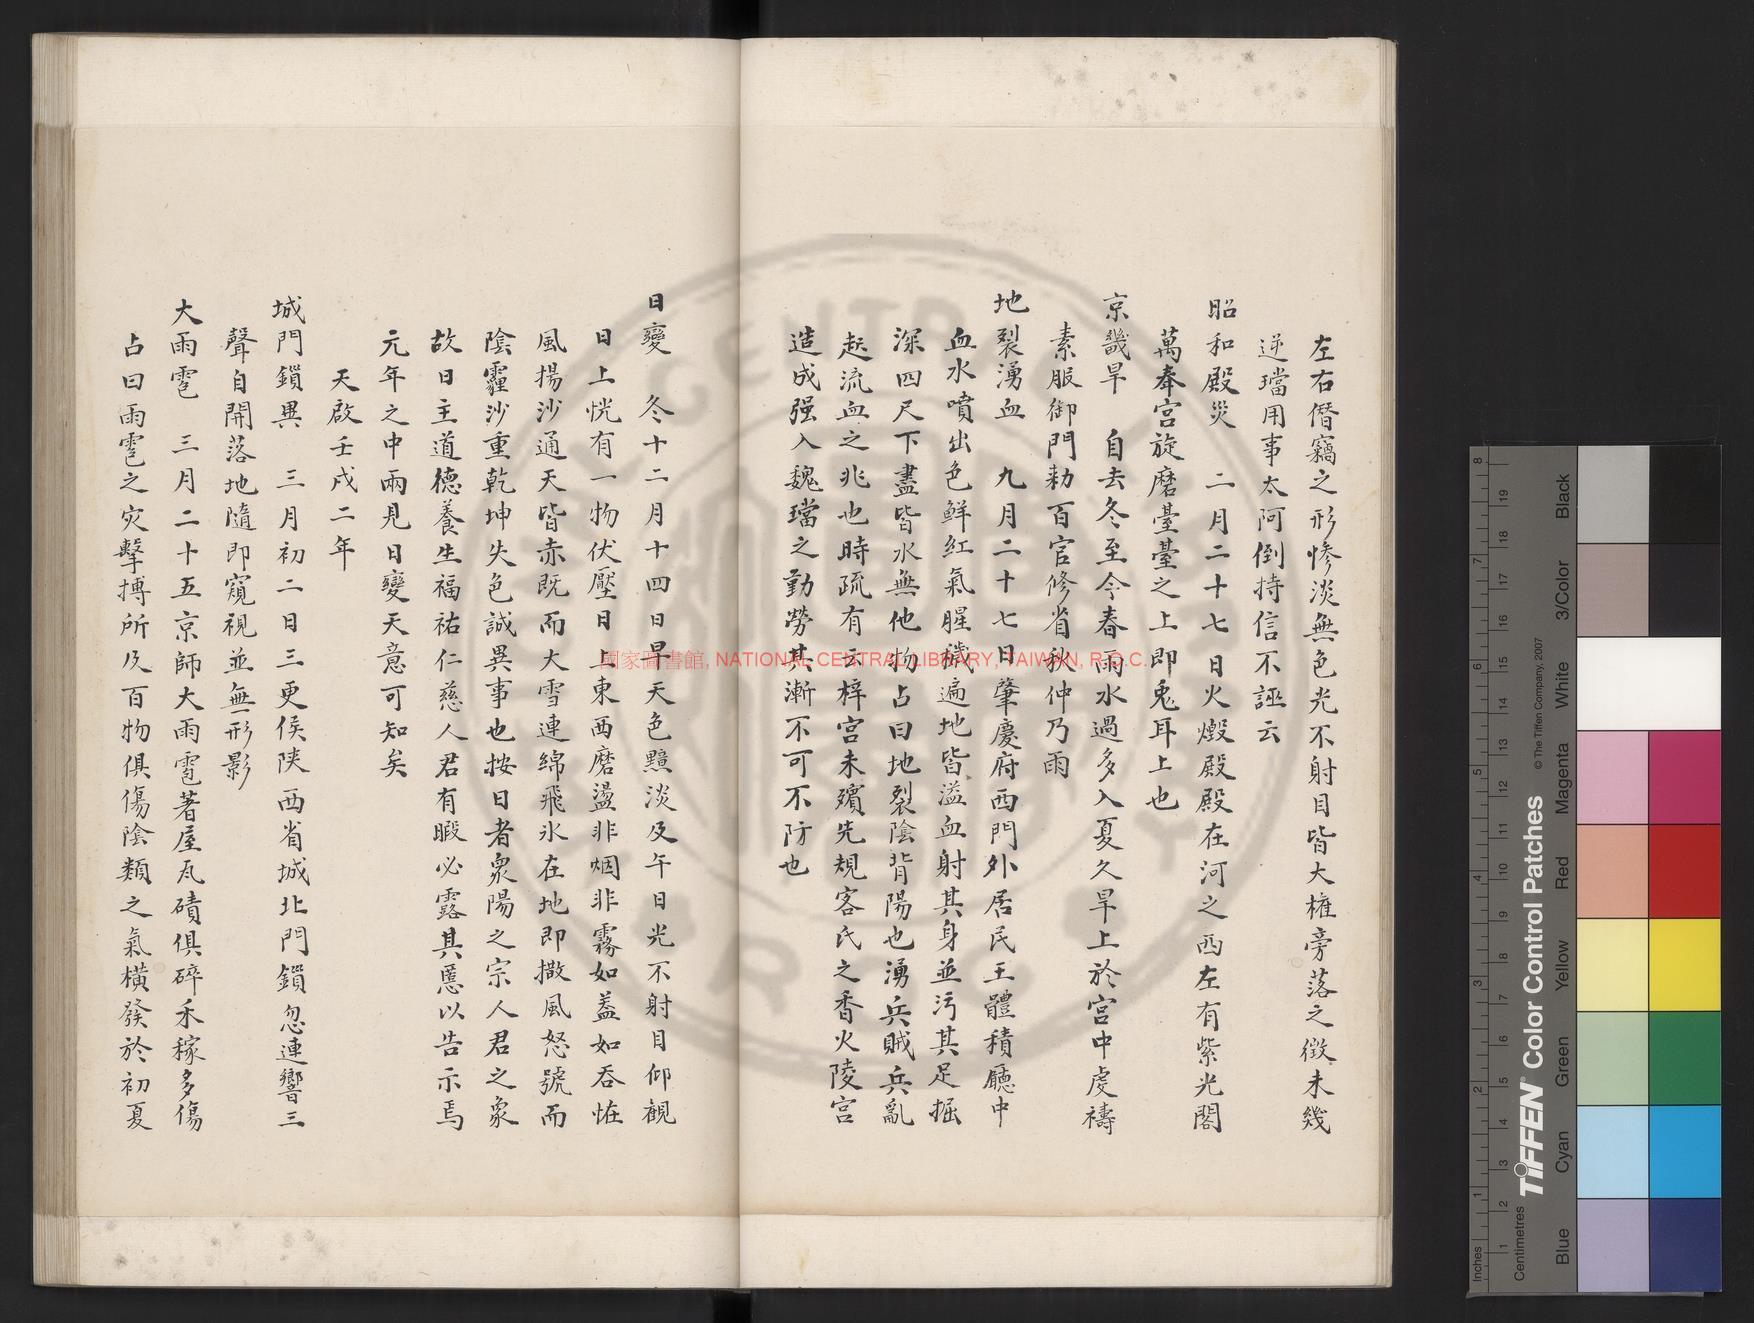 左右僭竊之形慘淡無色光不射目皆大權旁落之徵未幾
逆璫用事太阿倒持信不誣云
昭和殿災 二月二十七日火燬殿殿在河之西左有紫光閣
萬奉宮旋磨臺臺之上即兎耳上也
京畿旱 自去冬至今春雨水過多入夏久旱上於宮中虔禱
素服御門勅百官修省秋仲乃雨
地裂湧血 九月二十七日肇慶府西門外居民王體積廳中
血水噴出色鮮紅氣腥穢遍地皆溢血射其身並污其足掘
深四尺下盡皆水無他物占曰地裂陰背陽也湧兵賊兵亂
起流血之兆也時疏有云梓宮未殯先規客氏之香火陵宮
造成强入魏璫之勤勞其漸不可不防也
日變 冬十二月十四日早天色黯淡及午日光不射目仰觀
日上恍有一物伏壓日上東西磨盪非烟非霧如葢如吞恠
風揚沙通天皆赤既而大雪連綿飛氷在地即撒風怒號而
陰霾沙重乾坤失色誠異事也按日者衆陽之宗人君之象
故日主道德養生福祐仁慈人君有暇必露其慝以告示焉
元年之中兩見日變天意可知矣
天啟壬戌二年
城門鎖異 三月初二日三更侯陝西省城北門鎖忽連響三
聲自開落地隨即窺視並無形影
大雨雹 三月二十五京師大雨雹著屋瓦磧俱碎禾稼多傷
占曰雨雹之灾擊摶所及百物俱傷陰類之氣橫發於初夏
國家圖書館, NATIONAL CENTRAL LIBRARY, TAIWAN, R.O.C.
Inches
Centimetres
TIFFEN Color Control Patches
© The Tiffen Company, 2007
Blue
Cyan
Green
Yellow
Red
Magenta
White
3/Color
Black